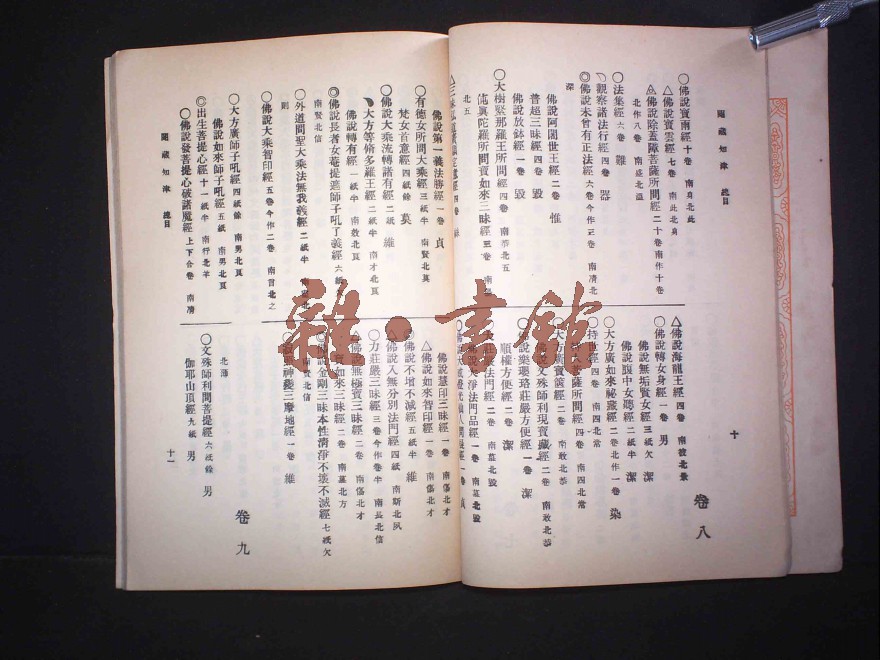 閱藏知津 總目
○佛說寶雨經 十卷 南身北此
△佛說寶雲經 七卷 南此北身
佛說除蓋障菩薩所問經 二十卷南作十卷
北作八卷 南盛北溫
○法集經 六卷 難
觀察諸法行經 四卷 器
◎佛說未曾有正法經 六卷今作三卷 南清北
深
佛說阿闍世王經 二卷 惟
普超三昧經 四卷 毀
佛說放鉢經 一卷 毀
○大樹緊那羅王所問經 四卷 南恭北五
伅眞陀羅所問寶如來三昧經 三卷
北五
十
卷八
△佛說海龍王經 四卷
○佛說轉女身經 一卷 男
佛說無垢賢女經 三紙欠 潔
佛說腹中女聽經 二紙半 潔
○大方廣如來祕密藏經 二卷北作一卷 染
○持世經 四卷 南四北常
菩薩所問經 四卷 南四北常
大方廣寶篋經 二卷 南敢北恭
文殊師利現寶藏經 二卷 南敢北恭
佛說樂瓔珞莊嚴方便經 一卷 潔
順權方便經 二卷 潔
法門經 二卷 南墓北毀
大淨法門品經 一卷 南墓北毀
佛說第一義法勝經 一卷 貞
○有德女所問大乘經 三紙半 南賢北莫
梵女首意經 四紙餘 莫
○佛說大乘流轉諸有經 二紙 維
大方等修多羅王經 二紙半 南才北莫
佛說轉有經 一紙半 南敢北莫
◎佛說長者女菴提遮師子吼了義經 六紙
南賢北信
○外道問聖大乘法無我義經 二紙半
則
○佛說大乘智印經 五卷今作二卷 南言北之
○大方廣師子吼經 四紙餘 南男北莫
佛說如來師子吼經 五紙 南男北莫
◎出生菩提心經 十一紙半
○佛說發菩提心破諸魔經 上下合卷 南清
閱藏知津 總目
△佛說慧印三昧經 一卷 南傷北才
△佛說如來智印經 一卷 南傷北才
佛說不增不減經 五紙半 維
△佛說入無分別法門經 四紙 南斯北夙
○力莊嚴三昧經 三卷今作卷半 南長北信
△佛說無極寶三昧經 二卷 南傷北才
寶如來三昧經 二卷 南墓北方
金剛三昧本性清淨不壞不滅經 七紙欠
南賢北信
神變三摩地經 一卷 維
卷九
北薄
○文殊師利問菩提經 六紙餘 男
伽耶山頂經 九紙 男
十一
雜·書館